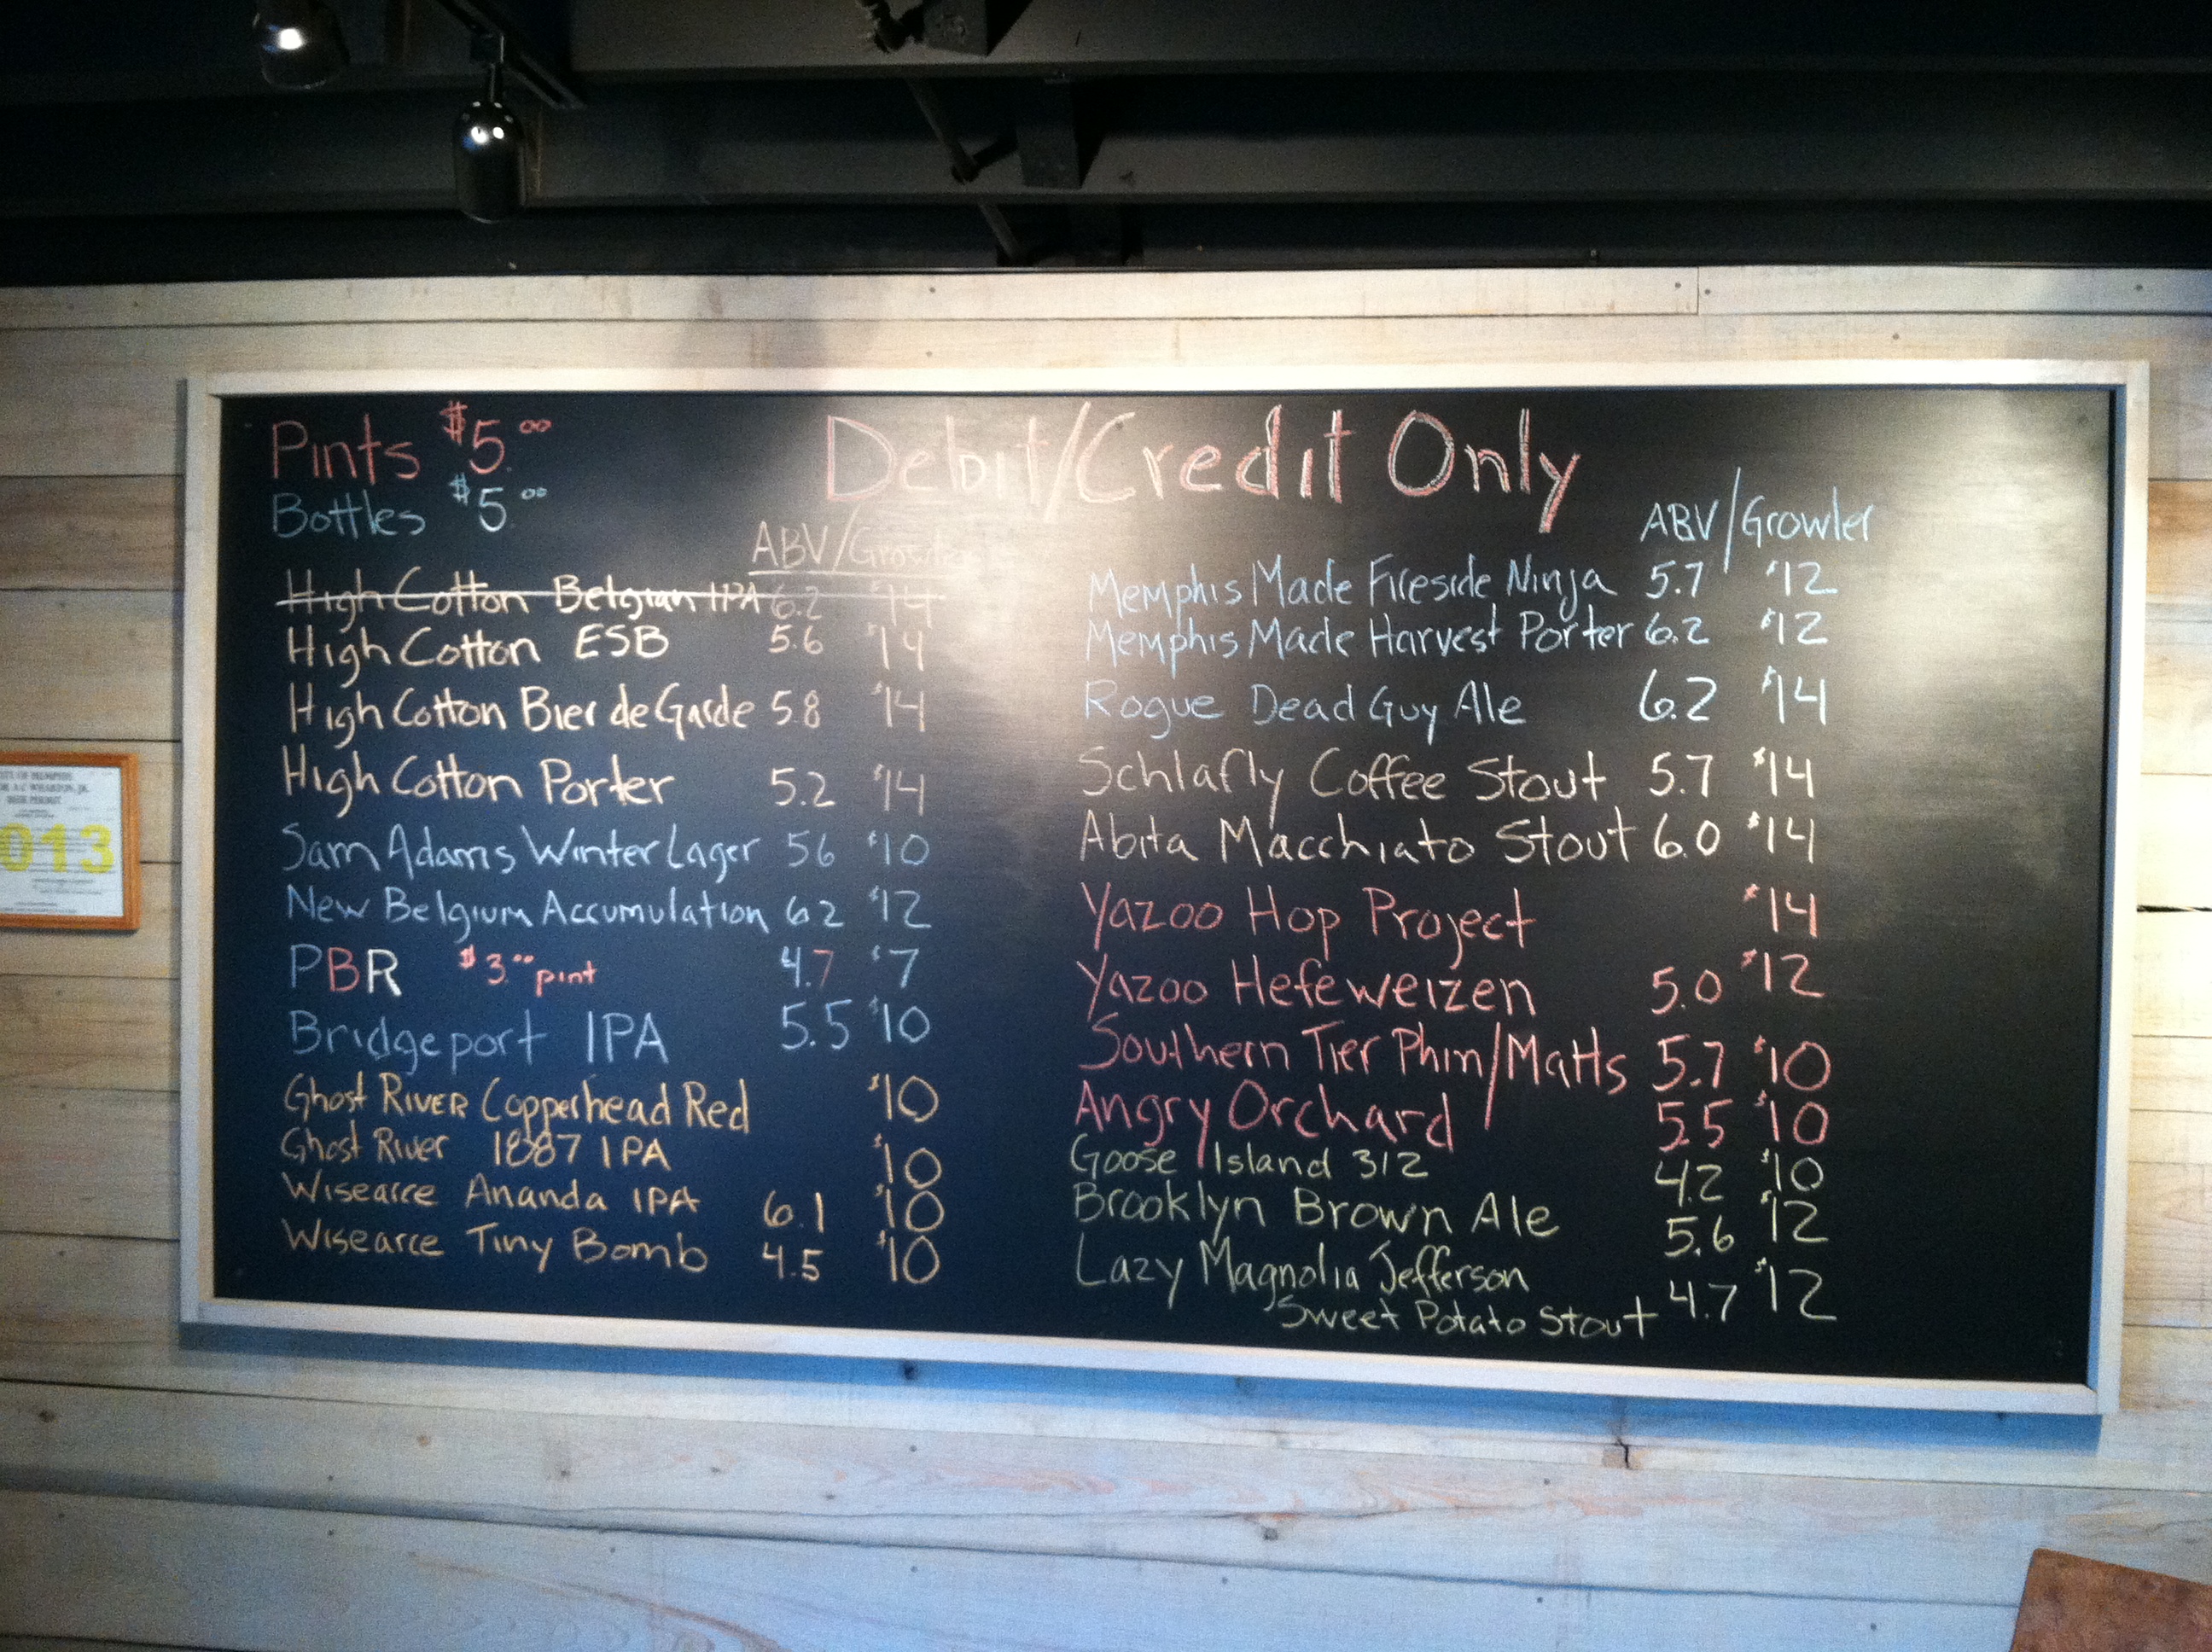 Pints $5.00
Bottles $5.00
Debit/Credit Only
ABV/Growler
High Cotton Belgian IPA 6.2 $14
High Cotton ESB 5.6 $14
High Cotton Bier de Garde 5.8 $14
High Cotton Porter 5.2 $14
Sam Adams Winter Lager 56 $10
New Belgium Accumulation 62 $12
PBR $3.00 pint 4.7 $7
Bridgeport IPA 5.5 $10
Ghost River Copperhead Red $10
Ghost River 1887 IPA $10
Wiseacre Ananda IPA 6.1 $10
Wiseacre Tiny Bomb 4.5 $10
ABV/Growler
Memphis Made Fireside Ninja 5.7 $12
Memphis Made Harvest Porter 6.2 $12
Rogue Dead Guy Ale 6.2 $14
Schlafly Coffee Stout 5.7 $14
Abita Macchiato Stout 6.0 $14
Yazoo Hop Project $14
Yazoo Hefeweizen 5.0 $12
Southern Tier Phin/Matts 5.7 $10
Angry Orchard 55 $10
Goose Island 312 4.2 $10
Brooklyn Brown Ale 5.6 $12
Lazy Magnolia Jefferson
Sweet Potato Stout 4.7 $12
013